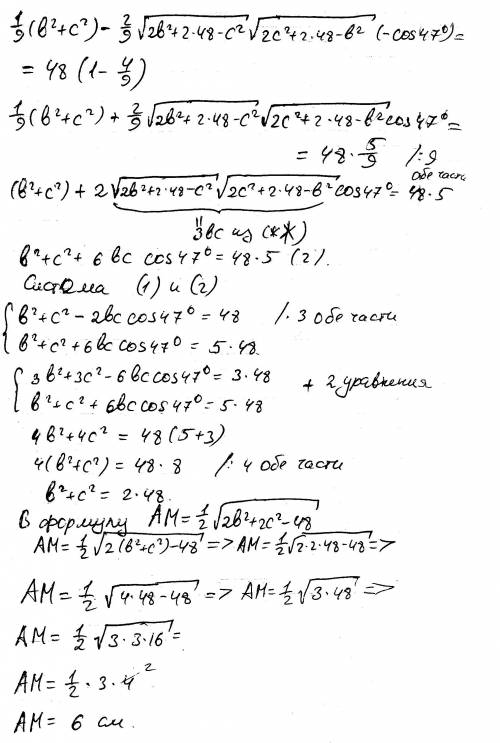 1/9(b²+c²) - 2/9 √(2b²+2·48-c²) √(2c²+2·48-b²) (-cos47°)=
= 48 (1-4/9)
1/9(b²+c²) + 2/9 √(2b²+2·48-c²) √(2c²+2·48-b²) cos47°=
= 48·5/9 /·9
обе части
(b²+c²) + 2 √(2b²+2·48-c²) √(2c²+2·48-b²) cos47°= 48·5
"
3bc из (**)
b²+c²+ 6 bc cos47°= 48·5 (2).
Система (1) и (2)
b²+c²- 2bc cos47°= 48 /·3 обе части
b²+c²+6bc cos47°= 5·48.
3b²+3c²-6bc cos47°= 3·48 + 2 уравнения
b²+c²+6bc cos47°= 5·48
4b²+4c² = 48(5+3)
4(b²+c²) = 48·8 /:4 обе части
b²+c²= 2·48.
В формулу AM=1/2 √(2b²+2c²-48)
AM=1/2 √(2(b²+c²)-48) => AM=1/2 √(2·2·48-48) =>
AM=1/2 √(4·48-48) => AM=1/2 √(3·48) =>
AM=1/2 √(3·3·16)=
AM=1/2·3·4 2
AM= 6 см.